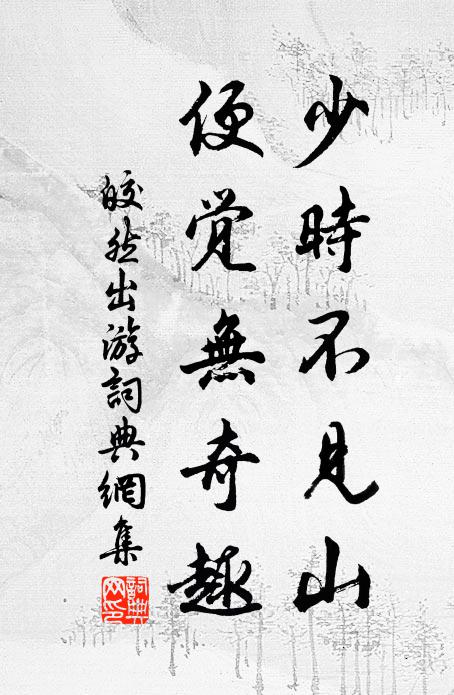 少時不見山
便觉無奇趣
皎然出游詞典網集
詞典